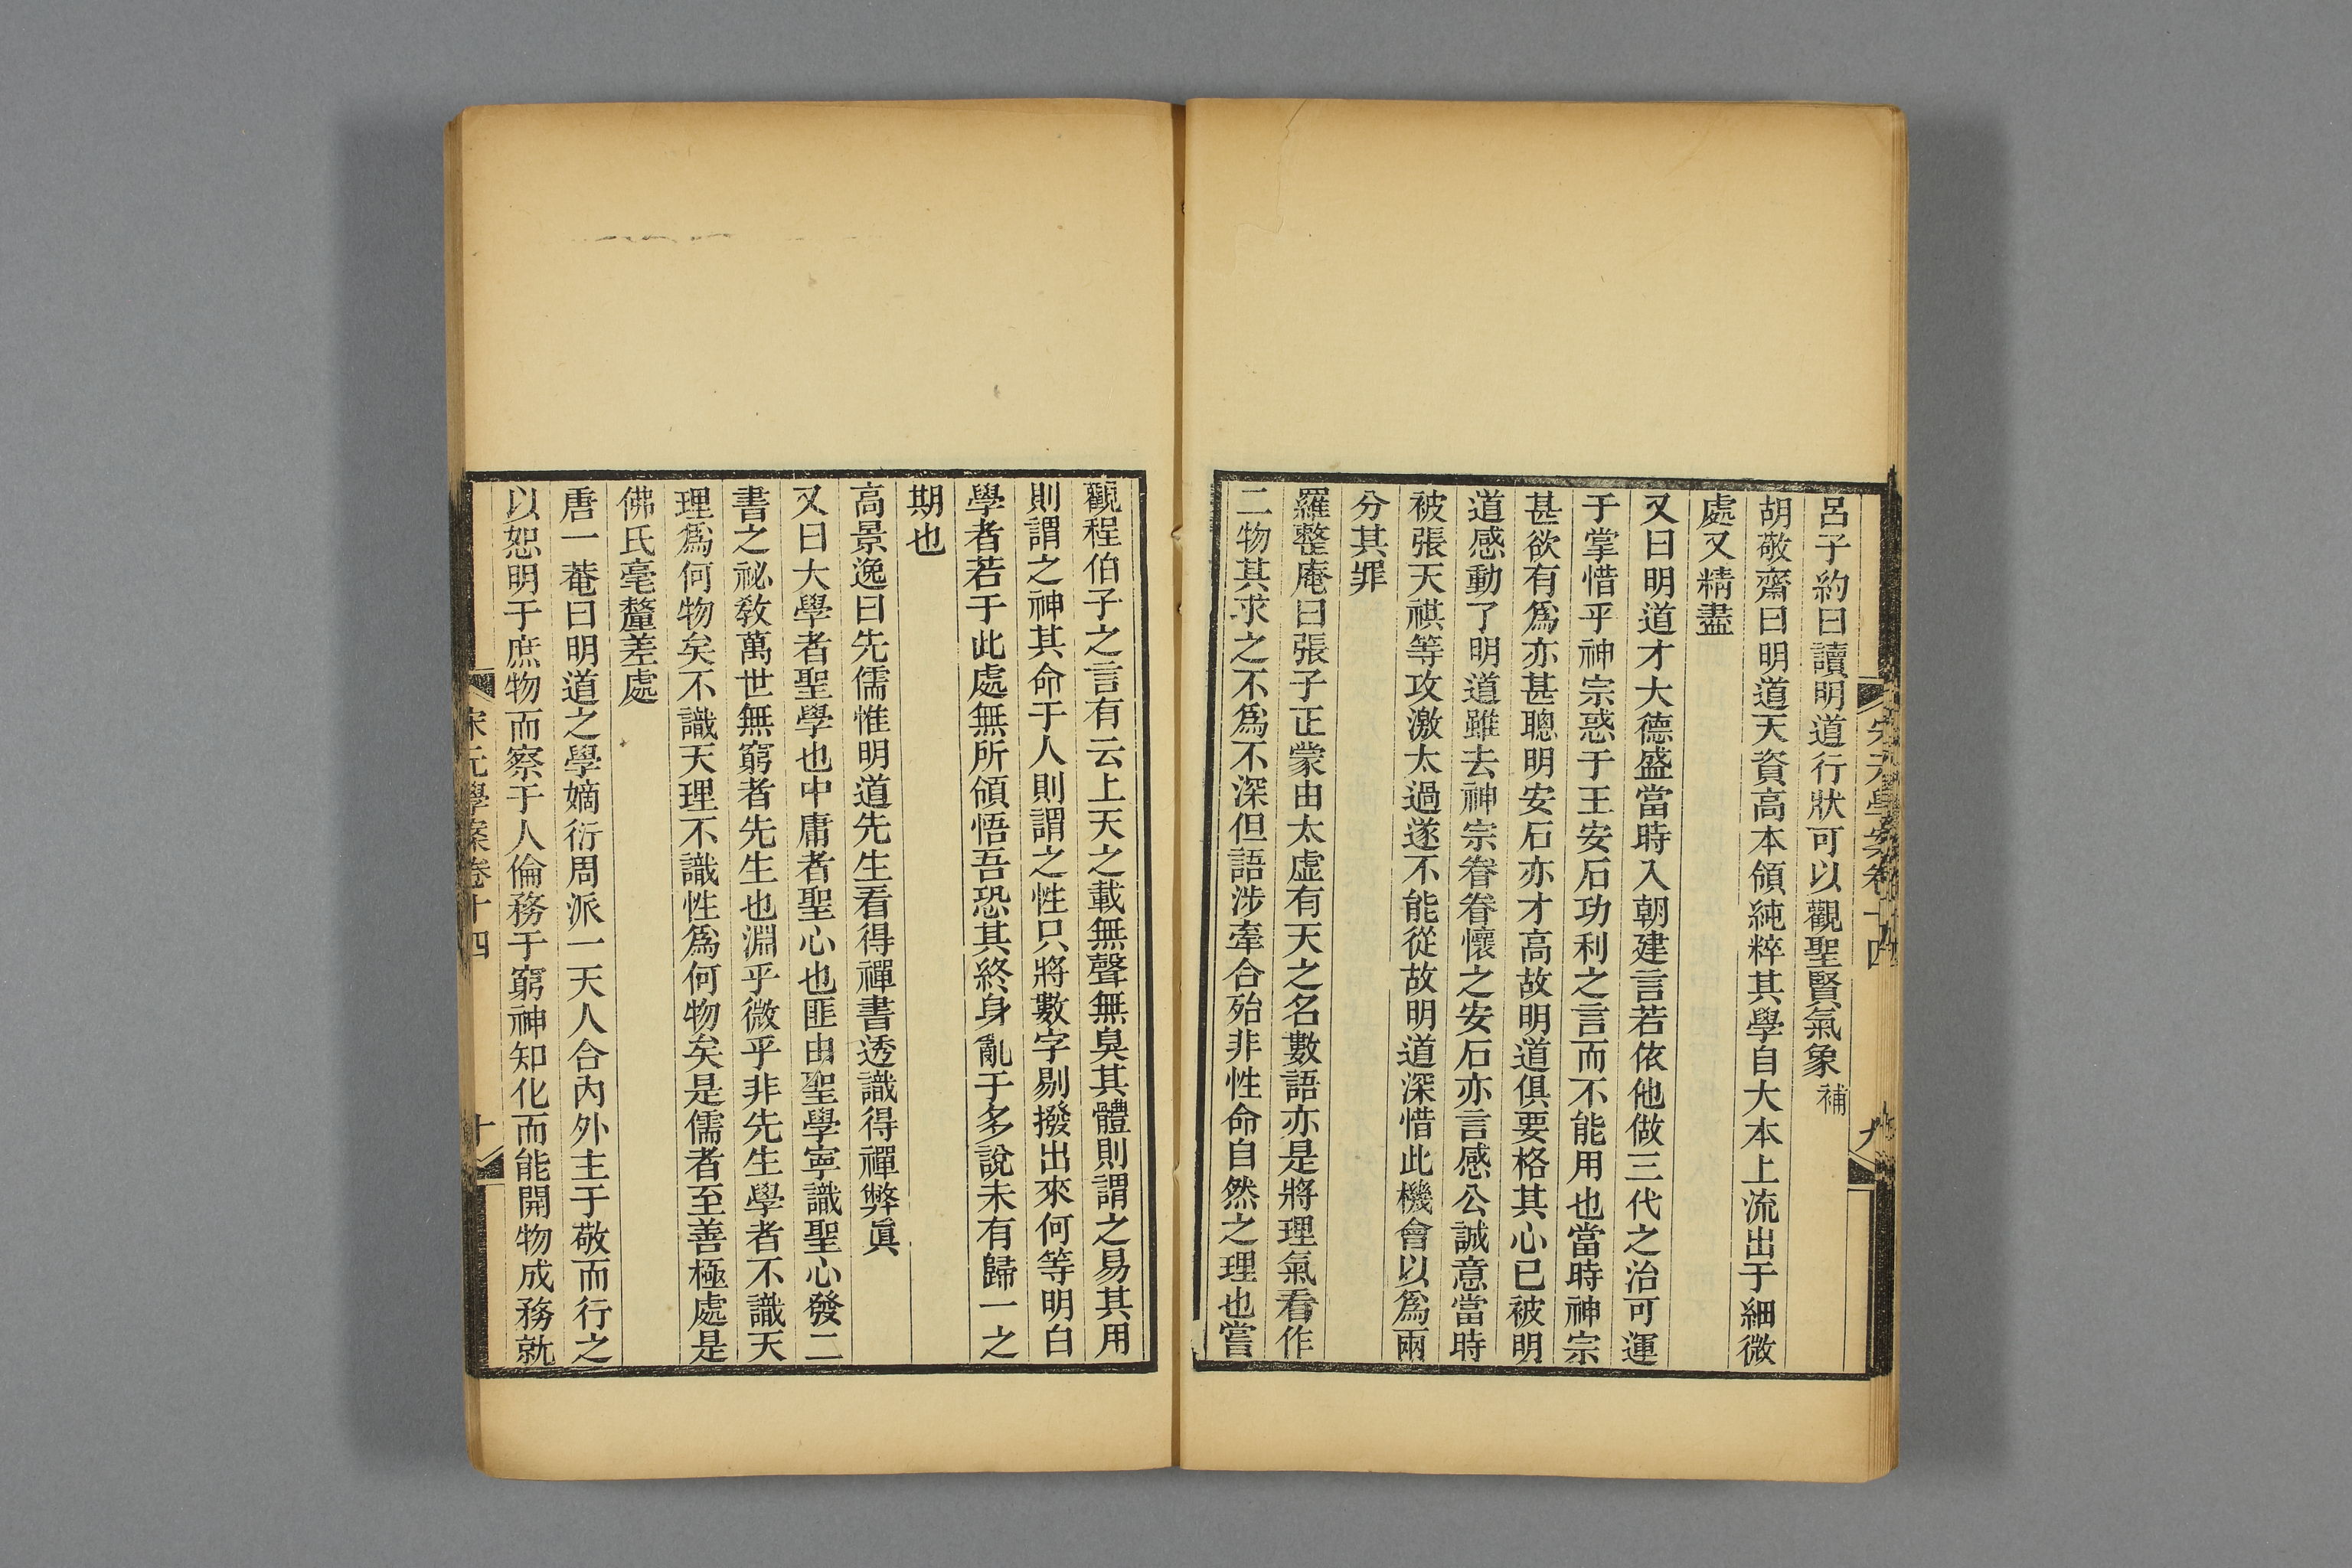 呂子約曰讀明道行狀可以觀聖賢氣象補
胡敬齋曰明道天資高本領純粹其學自大本上流出于細微
處又精盡
又曰明道才大德盛當時入朝建言若依他做三代之治可運
于掌惜乎神宗惑于王安石功利之言而不能用也當時神宗
甚欲有爲亦甚聰明安石亦才高故明道俱要格其心已被明
道感動了明道雖去神宗眷眷懷之安石亦言感公誠意當時
被張天祺等攻激太過遂不能從故明道深惜此機會以爲兩
分其罪
羅整庵曰張子正蒙由太虛有天之名數語亦是將理氣看作
二物其求之不爲不深但語涉牽合殆非性命自然之理也嘗
宋元學案卷十四
九
觀程伯子之言有云上天之載無聲無臭其體則謂之易其用
則謂之神其命于人則謂之性只將數字剔撥出來何等明白
學者若于此處無所領悟吾恐其終身亂于多說未有歸一之
期也
高景逸曰先儒惟明道先生看得禪書透識得禪弊眞
又曰大學者聖學也中庸者聖心也匪由聖學寧識聖心發二
書之祕敎萬世無窮者先生也淵乎微乎非先生學者不識天
理爲何物矣不識天理不識性爲何物矣是儒者至善極處是
佛氏毫釐差處
唐一菴曰明道之學嫡衍周派一天人合內外主于敬而行之
以恕明于庶物而察于人倫務于窮神知化而能開物成務就
宋元學案卷十四
十